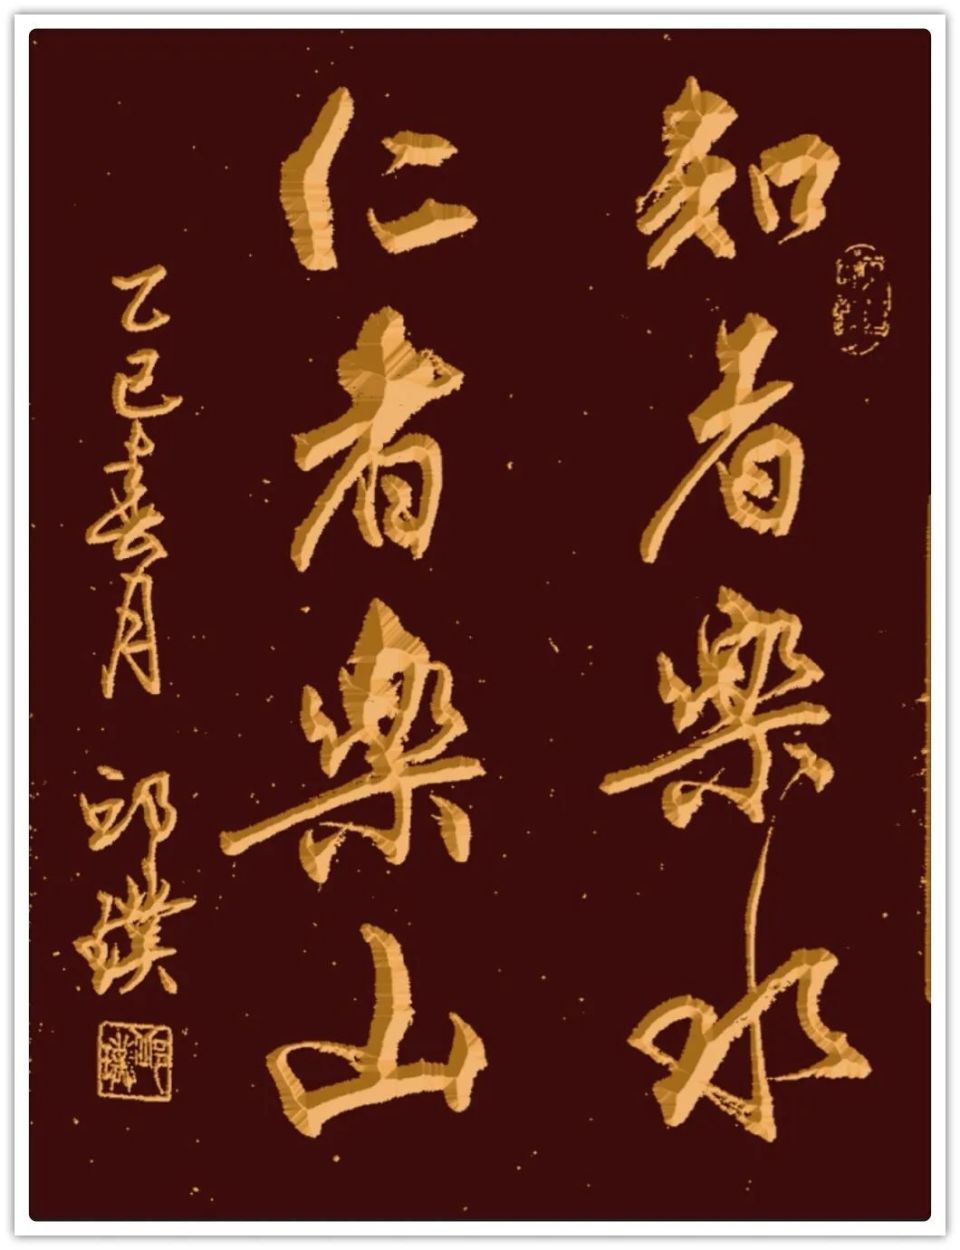 知者樂水
仁者樂山
乙巳春月
邱璞
邱璞